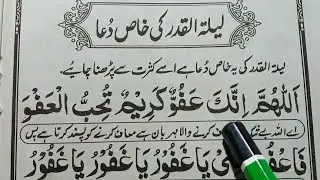 لیلۃ القدر کی خاص دُعا
لیلۃ القدر کی یہ خاص دُعا ہے اسے کثرت سے پڑھنا چاہیے۔
اَللّٰهُمَّ اِنَّكَ عَفُوٌّ كَرِيْمٌ تُحِبُّ الْعَفْوَ
اے اللہ بے کرنے والا مہربان ہے معاف کرنے کو پسند کرتا ہے پس
فَاعْفُ يَا غَفُوْرُ يَا غَفُوْرُ يَا غَفُوْرُ